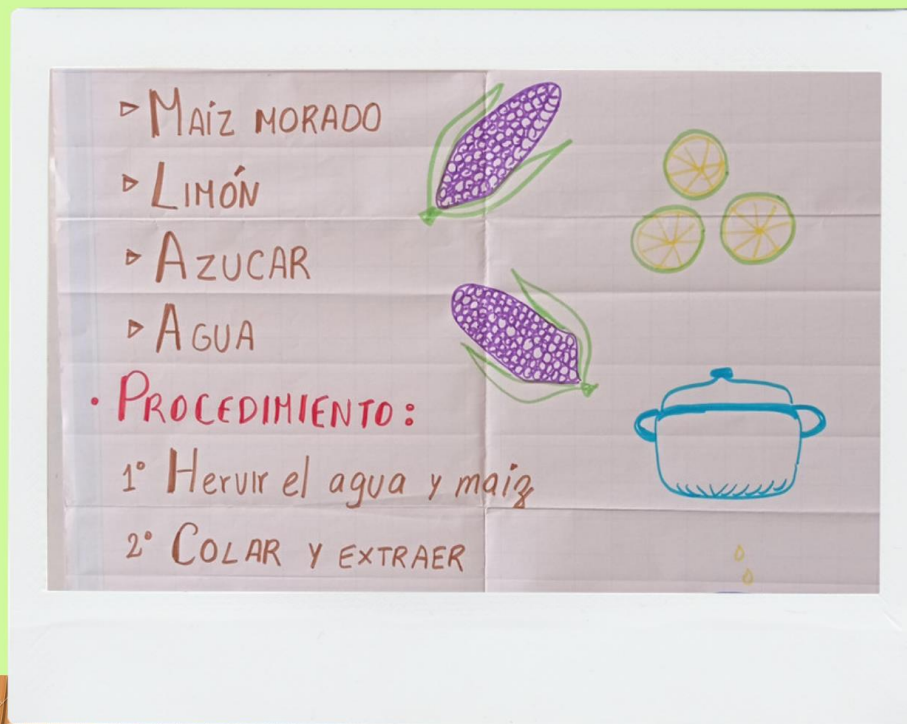 ▹ MAíZ MORADO
▹ LIMÓN
▹ AZUCAR
▹ AGUA
• PROCEDIMIENTO:
1° Hervir el agua y maiz
2° COLAR Y EXTRAER